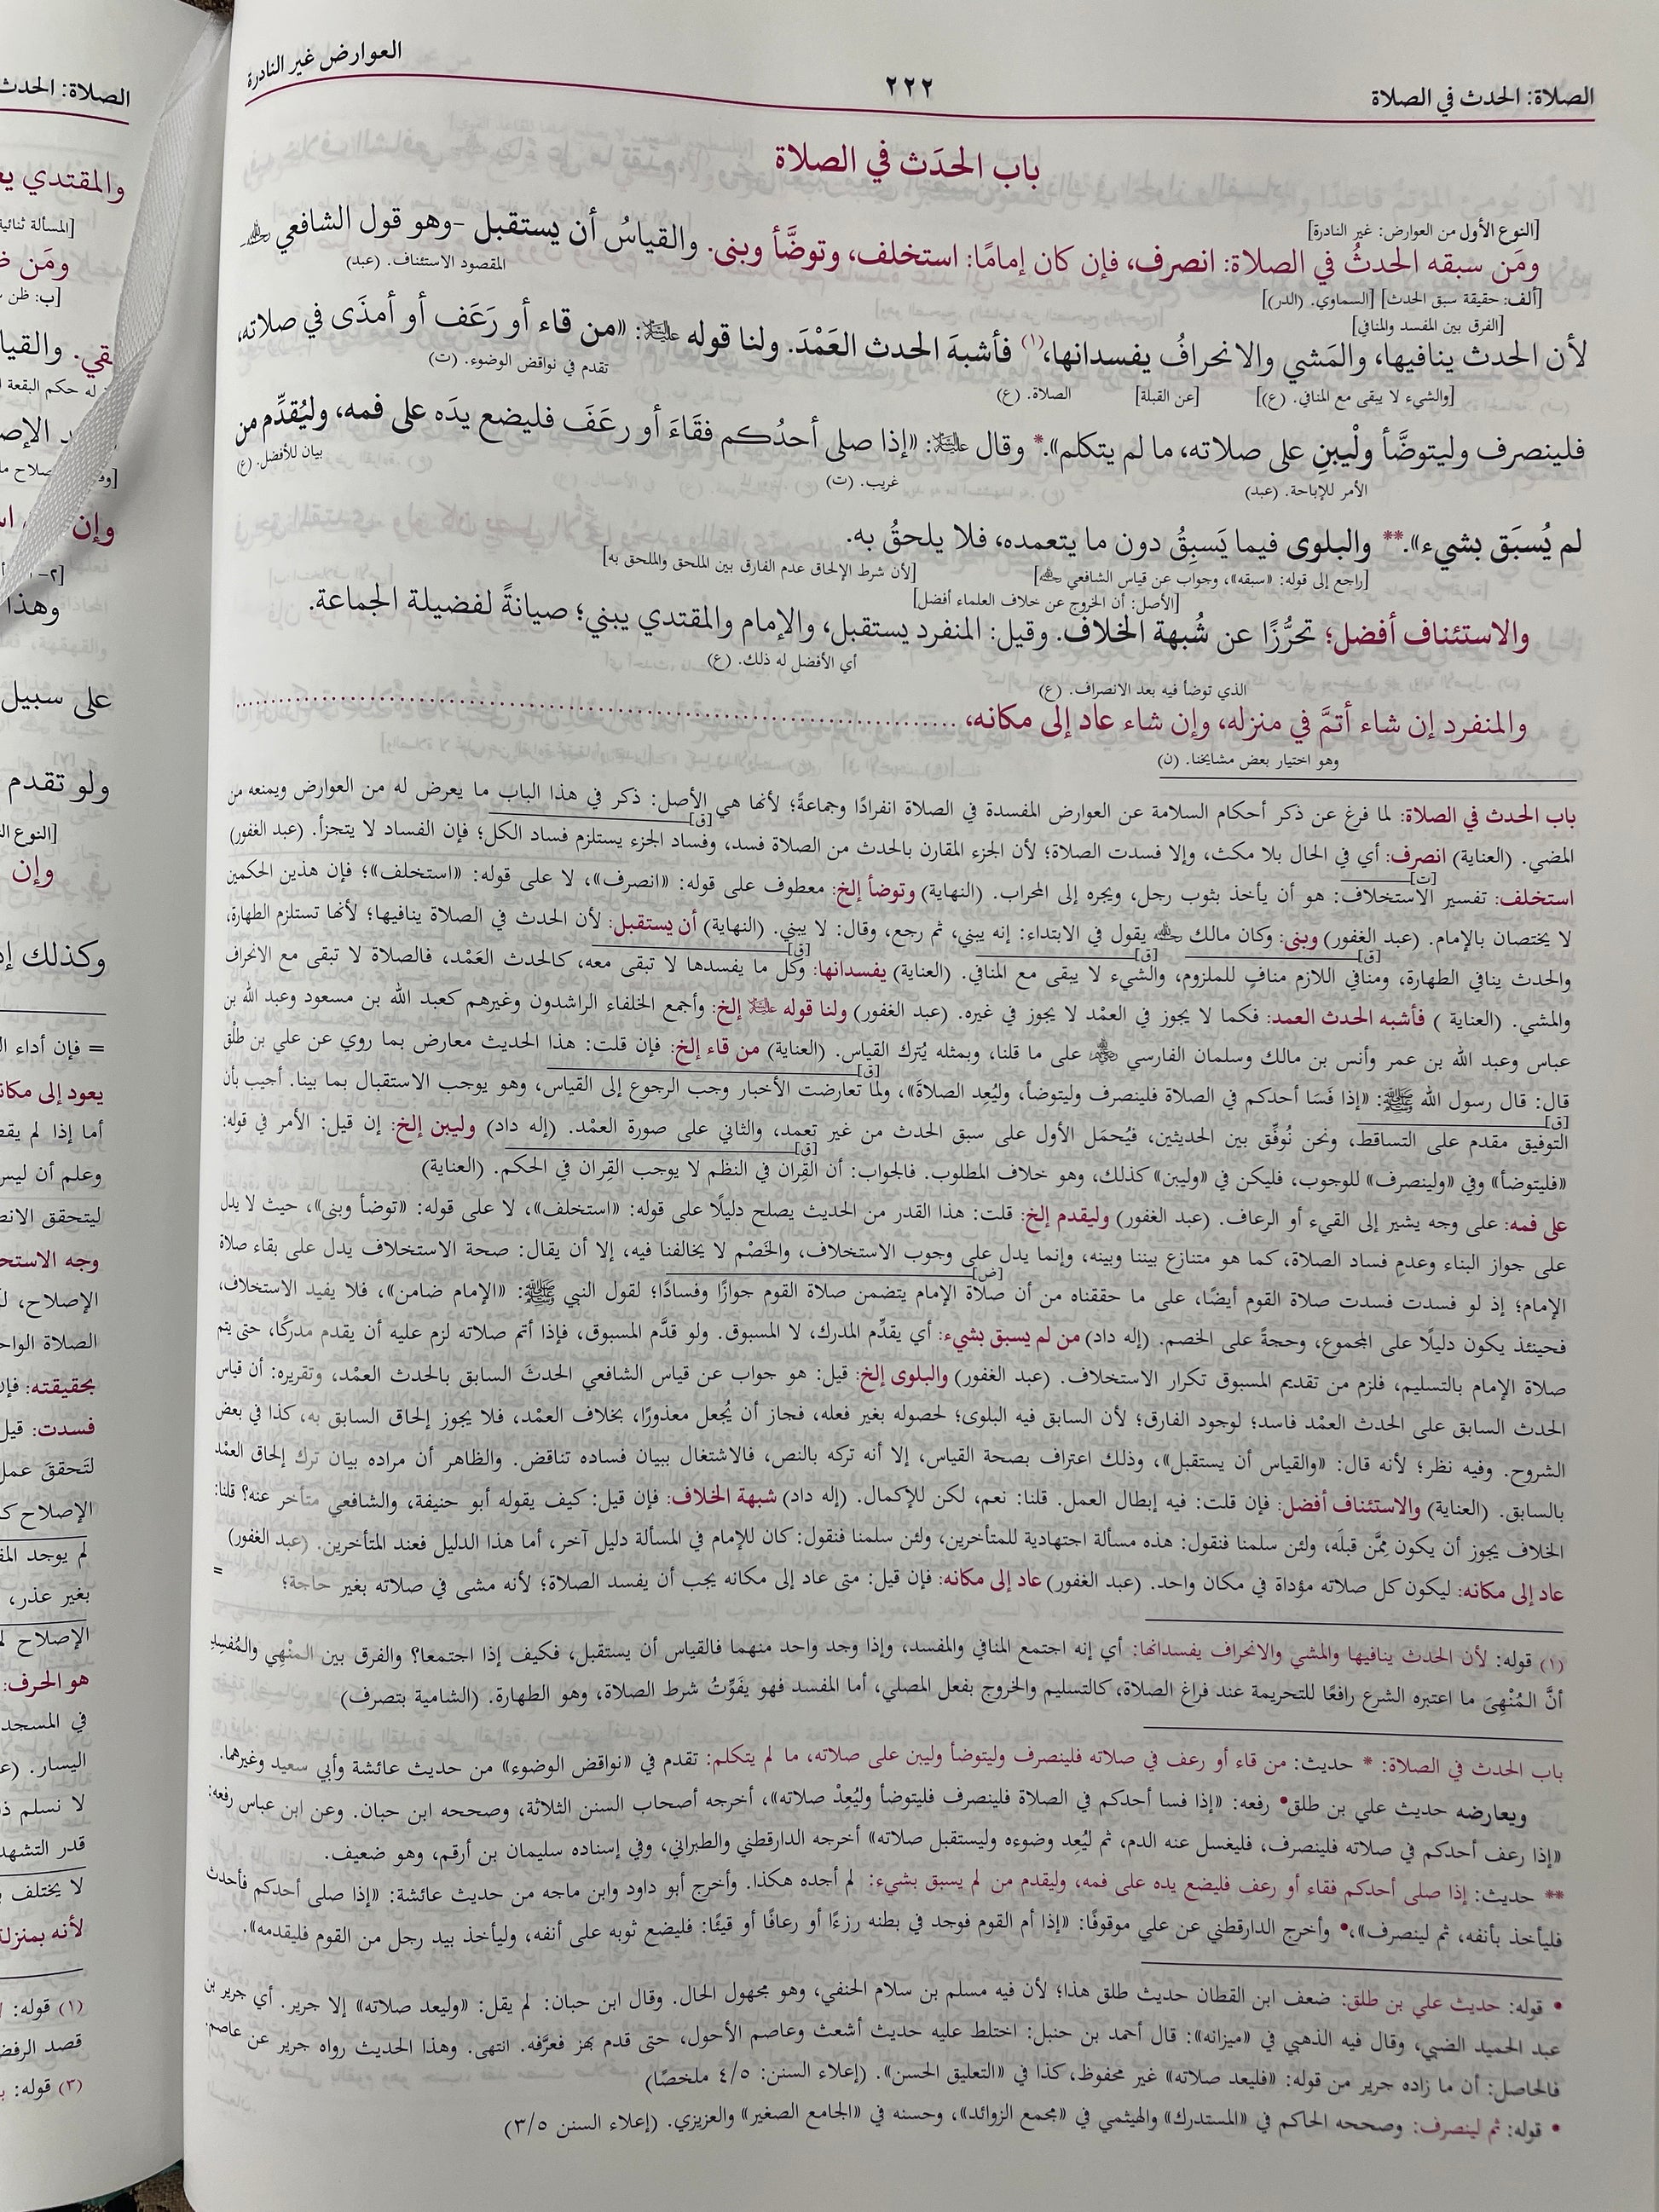 الصلاة: الحدث في الصلاة
٢٢٢
العوارض غير النادرة
باب الحدَث في الصلاة
[النوع الأول من العوارض: غير النادرة]
ومَن سبقه الحدثُ في الصلاة: انصرف، فإن كان إمامًا: استخلف، وتوضَّأ وبنى. والقياسُ أن يستقبل -وهو قول الشافعي رحمه الله-
[ألف: حقيقة سبق الحدث] [السماوي. (الدر)]
المقصود الاستئناف. (عبد)
[الفرق بين المفسد والمنافي]
لأن الحدث ينافيها، والمَشي والانحرافُ يفسدانها،(١) فأشبهَ الحدث العَمْدَ. ولنا قوله عليه السلام: «من قاء أو رَعَف أو أمذَى في صلاته،
[والشيء لا يبقى مع المنافي. (ع)]
[عن القبلة]
الصلاة. (ع)
تقدم في نواقض الوضوء. (ت)
فلينصرف وليتوضَّأ ولْيبنِ على صلاته، ما لم يتكلم».* وقال عليه السلام: «إذا صلى أحدُكم فقَاءَ أو رعَفَ فليضع يدَه على فمه، وليُقدِّم من
الأمر للإباحة. (عبد)
غريب. (ت)
بيان للأفضل. (ع)
لم يُسبَق بشيء».** والبلوى فيما يَسبِقُ دون ما يتعمده، فلا يلحقُ به.
[راجع إلى قوله: «سبقه»، وجواب عن قياس الشافعي رحمه الله]
[لأن شرط الإلحاق عدم الفارق بين الملحق والملحق به]
[الأصل: أن الخروج عن خلاف العلماء أفضل]
والاستئناف أفضل؛ تحرُّزًا عن شُبهة الخلاف. وقيل: المنفرد يستقبل، والإمام والمقتدي يبني؛ صيانةً لفضيلة الجماعة.
أي الأفضل له ذلك. (ع)
الذي توضأ فيه بعد الانصراف. (ع)
والمنفرد إن شاء أتمَّ في منزله، وإن شاء عاد إلى مكانه،
وهو اختيار بعض مشايخنا. (ن)
باب الحدث في الصلاة: لما فرغ عن ذكر أحكام السلامة عن العوارض المفسدة في الصلاة انفرادًا وجماعةً؛ لأنها هي الأصل: ذكر في هذا الباب ما يعرض له من العوارض ويمنعه من
المضي. (العناية) انصرف: أي في الحال بلا مكث، وإلا فسدت الصلاة؛ لأن الجزء المقارن بالحدث من الصلاة فسد، وفساد الجزء يستلزم فساد الكل؛ فإن الفساد لا يتجزأ. (عبد الغفور)
استخلف: تفسير الاستخلاف: هو أن يأخذ بثوب رجل، ويجره إلى المحراب. (النهاية) وتوضأ إلخ: معطوف على قوله: «انصرف»، لا على قوله: «استخلف»؛ فإن هذين الحكمين
لا يختصان بالإمام. (عبد الغفور) وبنى: وكان مالك رحمه الله يقول في الابتداء: إنه يبني، ثم رجع، وقال: لا يبني. (النهاية) أن يستقبل: لأن الحدث في الصلاة ينافيها؛ لأنها تستلزم الطهارة،
والحدث ينافي الطهارة، ومنافي اللازم منافٍ للملزوم، والشيء لا يبقى مع المنافي. (العناية) يفسدانها: وكل ما يفسدها لا تبقى معه، كالحدث العَمْد، فالصلاة لا تبقى مع الانحراف
والمشي. (العناية ) فأشبه الحدث العمد: فكما لا يجوز في العمْد لا يجوز في غيره. (عبد الغفور) ولنا قوله عليه السلام إلخ: وأجمع الخلفاء الراشدون وغيرهم كعبد الله بن مسعود وعبد الله بن
عباس وعبد الله بن عمر وأنس بن مالك وسلمان الفارسي رضي الله عنهم على ما قلنا، وبمثله يُترك القياس. (العناية) من قاء إلخ: فإن قلت: هذا الحديث معارض بما روي عن علي بن طلْق
قال: قال رسول الله ﷺ: «إذا فَسَا أحدكم في الصلاة فلينصرف وليتوضأ، وليُعِد الصلاةَ»، ولما تعارضت الأخبار وجب الرجوع إلى القياس، وهو يوجب الاستقبال بما بينا. أجيب بأن
التوفيق مقدم على التساقط، ونحن نُوفِّق بين الحديثين، فيُحمَل الأول على سبق الحدث من غير تعمد، والثاني على صورة العمْد. (إله داد) وليبن إلخ: إن قيل: الأمر في قوله:
«فليتوضأ» وفي «ولينصرف» للوجوب، فليكن في «وليبن» كذلك، وهو خلاف المطلوب. فالجواب: أن القِران في النظم لا يوجب القِران في الحكم. (العناية)
على فمه: على وجه يشير إلى القيء أو الرعاف. (عبد الغفور) وليقدم إلخ: قلت: هذا القدر من الحديث يصلح دليلًا على قوله: «استخلف»، لا على قوله: «توضأ وبنى»، حيث لا يدل
على جواز البناء وعدمِ فساد الصلاة، كما هو متنازع بيننا وبينه، وإنما يدل على وجوب الاستخلاف، والخَصْم لا يخالفنا فيه، إلا أن يقال: صحة الاستخلاف يدل على بقاء صلاة
الإمام؛ إذ لو فسدت فسدت صلاة القوم أيضًا، على ما حققناه من أن صلاة الإمام يتضمن صلاة القوم جوازًا وفسادًا؛ لقول النبي ﷺ: «الإمام ضامن»، فلا يفيد الاستخلاف،
فحينئذ يكون دليلًا على المجموع، وحجةً على الخصم. (إله داد) من لم يسبق بشيء: أي يقدِّم المدرك، لا المسبوق. ولو قدَّم المسبوق، فإذا أتم صلاته لزم عليه أن يقدم مدركًا، حتى يتم
صلاة الإمام بالتسليم، فلزم من تقديم المسبوق تكرار الاستخلاف. (عبد الغفور) والبلوى إلخ: قيل: هو جواب عن قياس الشافعي الحدثَ السابق بالحدث العمْد، وتقريره: أن قياس
الحدث السابق على الحدث العمْد فاسد؛ لوجود الفارق؛ لأن السابق فيه البلوى؛ لحصوله بغير فعله، فجاز أن يُجعل معذورًا، بخلاف العمْد، فلا يجوز إلحاق السابق به، كذا في بعض
الشروح. وفيه نظر؛ لأنه قال: «والقياس أن يستقبل»، وذلك اعتراف بصحة القياس، إلا أنه تركه بالنص، فالاشتغال ببيان فساده تناقض. والظاهر أن مراده بيان ترك إلحاق العمْد
بالسابق. (العناية) والاستئناف أفضل: فإن قلت: فيه إبطال العمل. قلنا: نعم، لكن للإكمال. (إله داد) شبهة الخلاف: فإن قيل: كيف يقوله أبو حنيفة، والشافعي متأخر عنه؟ قلنا:
الخلاف يجوز أن يكون مِمَّن قبلَه، ولئن سلمنا فنقول: هذه مسألة اجتهادية للمتأخرين، ولئن سلمنا فنقول: كان للإمام في المسألة دليل آخر، أما هذا الدليل فعند المتأخرين. (عبد الغفور)
عاد إلى مكانه: ليكون كل صلاته مؤداة في مكان واحد. (عبد الغفور) عاد إلى مكانه: فإن قيل: متى عاد إلى مكانه يجب أن يفسد الصلاة؛ لأنه مشى في صلاته بغير حاجة؛ =
(١) قوله: لأن الحدث ينافيها والمشي والانحراف يفسدانها: أي إنه اجتمع المنافي والمفسد، وإذا وجد واحد منهما فالقياس أن يستقبل، فكيف إذا اجتمعا؟ والفرق بين المنْهِي والمُفسِد
أنَّ المُنْهِيَ ما اعتبره الشرع رافعًا للتحريمة عند فراغ الصلاة، كالتسليم والخروج بفعل المصلي، أما المفسد فهو يفَوِّتُ شرط الصلاة، وهو الطهارة. (الشامية بتصرف)
باب الحدث في الصلاة: * حديث: من قاء أو رعف في صلاته فلينصرف وليتوضأ وليبن على صلاته، ما لم يتكلم: تقدم في «نواقض الوضوء» من حديث عائشة وأبي سعيد وغيرهما.
ويعارضه حديث علي بن طلق• رفعه: «إذا فسا أحدكم في الصلاة فلينصرف فليتوضأ وليُعِدْ صلاته»، أخرجه أصحاب السنن الثلاثة، وصححه ابن حبان. وعن ابن عباس رفعه:
«إذا رعف أحدكم في صلاته فلينصرف، فليغسل عنه الدم، ثم ليُعِد وضوءه وليستقبل صلاته» أخرجه الدارقطني والطبراني، وفي إسناده سليمان بن أرقم، وهو ضعيف.
** حديث: إذا صلى أحدكم فقاء أو رعف فليضع يده على فمه، وليقدم من لم يسبق بشيء: لم أجده هكذا. وأخرج أبو داود وابن ماجه من حديث عائشة: «إذا صلى أحدكم فأحدث
فليأخذ بأنفه، ثم لينصرف»،• وأخرج الدارقطني عن علي موقوفًا: «إذا أم القوم فوجد في بطنه رزءًا أو رعافًا أو قيئًا: فليضع ثوبه على أنفه، وليأخذ بيد رجل من القوم فليقدمه».
• قوله: حديث علي بن طلق: ضعف ابن القطان حديث طلق هذا؛ لأن فيه مسلم بن سلام الحنفي، وهو مجهول الحال. وقال ابن حبان: لم يقل: «وليعد صلاته» إلا جرير. أي جرير بن
عبد الحميد الضبي، وقال فيه الذهبي في «ميزانه»: قال أحمد بن حنبل: اختلط عليه حديث أشعث وعاصم الأحول، حتى قدم بهز فعرَّفه. انتهى. وهذا الحديث رواه جرير عن عاصم.
فالحاصل: أن ما زاده جرير من قوله: «فليعد صلاته» غير محفوظ، كذا في «التعليق الحسن». (إعلاء السنن: ٤/٥ ملخصًا)
• قوله: ثم لينصرف: وصححه الحاكم في «المستدرك» والهيثمي في «مجمع الزوائد»، وحسنه في «الجامع الصغير» والعزيزي. (إعلاء السنن ٣/٥)